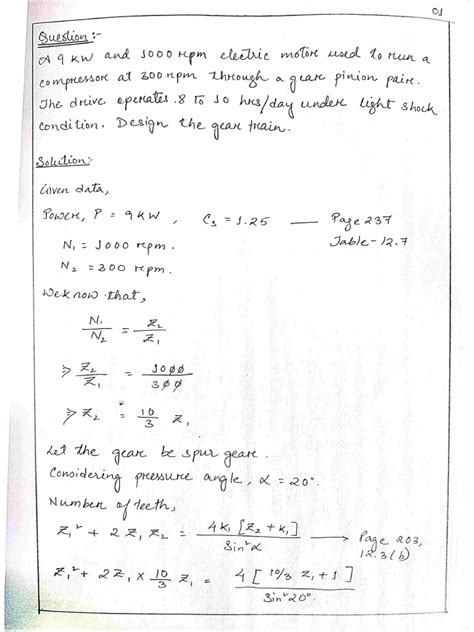 01
Question :-
A 9 kW and 1000 rpm electric motor used to run a
compressor at 300 rpm through a gear pinion pair.
The drive operates 8 to 10 hrs/day under light shock
condition. Design the gear train.
Solution:-
Given data,
Power, P = 9 kW , C₃ = 1.25 — Page 237
N₁ = 1000 rpm. Table - 12.7
N₂ = 300 rpm.
We know that,
N₁/N₂ = Z₂/Z₁
⇒ Z₂/Z₁ = 1000/300
⇒ Z₂ = 10/3 Z₁
Let the gear be spur gear.
Considering pressure angle, α = 20°.
Number of teeth,
Z₁² + 2 Z₁ Z₂ = 4K₁ [Z₂ + K₁]/Sin²α → Page 203, 12.3(b)
Z₁² + 2Z₁ × 10/3 Z₁ = 4 [10/3 Z₁ + 1]/Sin²20°